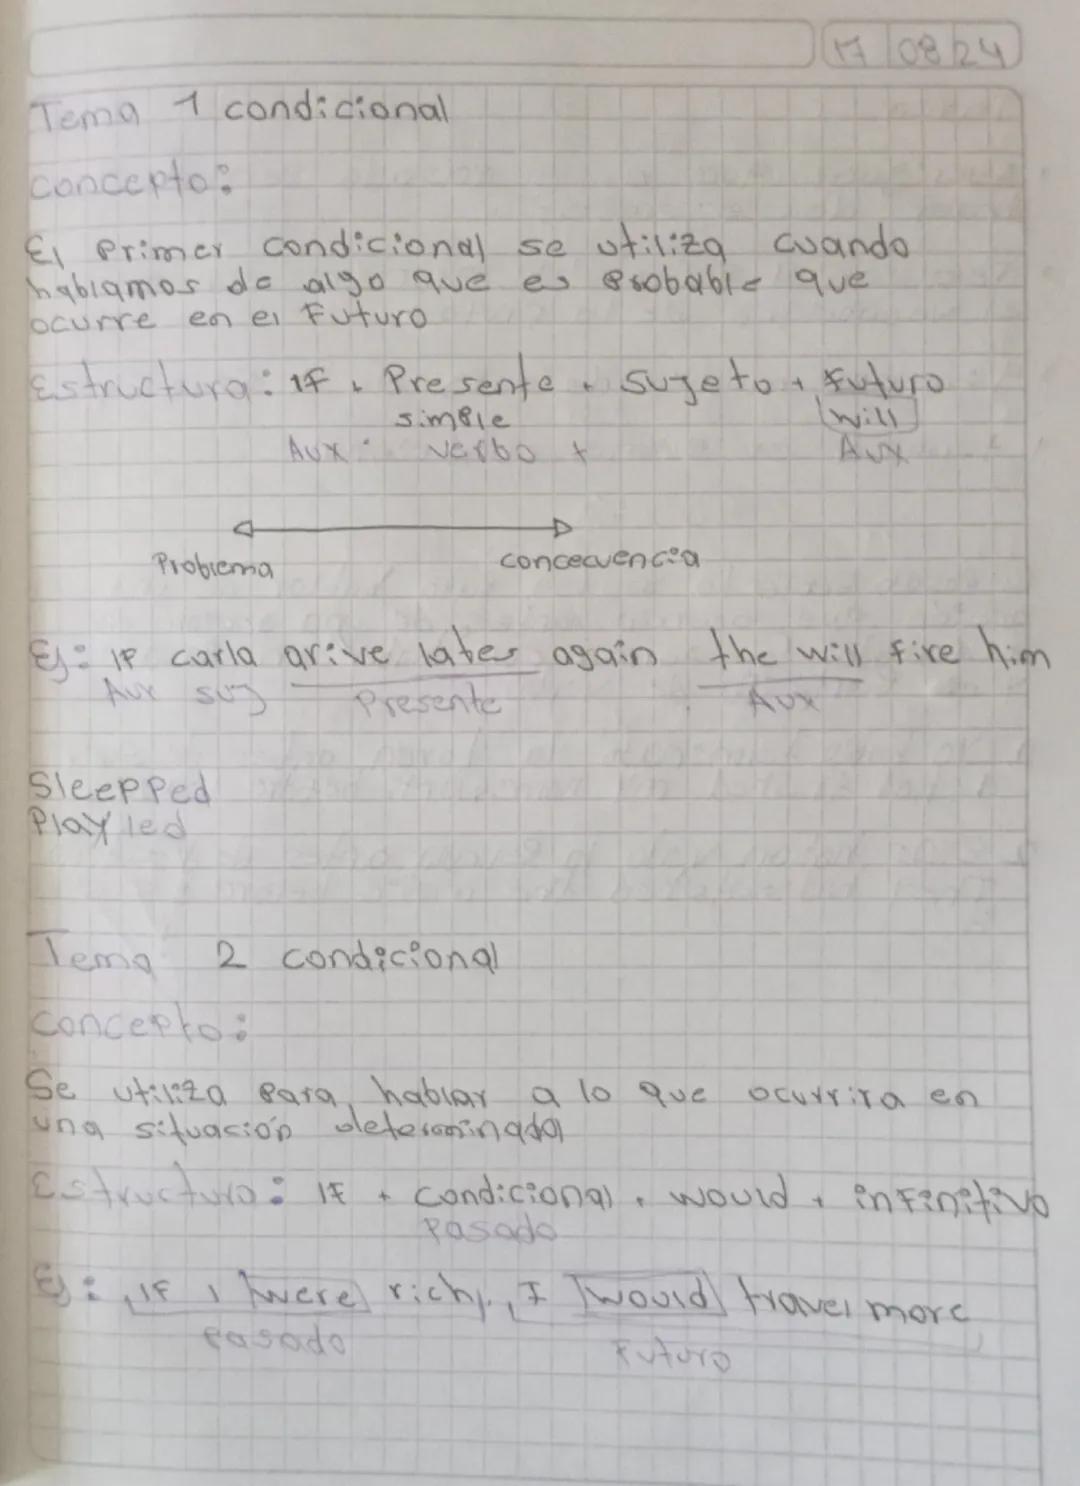 17 08 24
Tema 1 condicional
concepto:
El Primer condicional se utiliza cuando
hablamos de algo que es Probable que
ocurre en el Futuro
Estructura: IF + Presente + Sujeto + Futuro
simple will
Aux: verbo + Aux
Problema concecuencia
Ej: IF carla arive later again the will fire him
Aux suj Presente Aux
Sleepped
Play led
Tema 2 condicional
concepto:
Se utiliza Para hablar a lo que ocurrira en
una situación determinada
Estructura: IF + condicional + would + infinitivo
Pasado
Ej: IF I were rich, I would travel more
Pasado Futuro